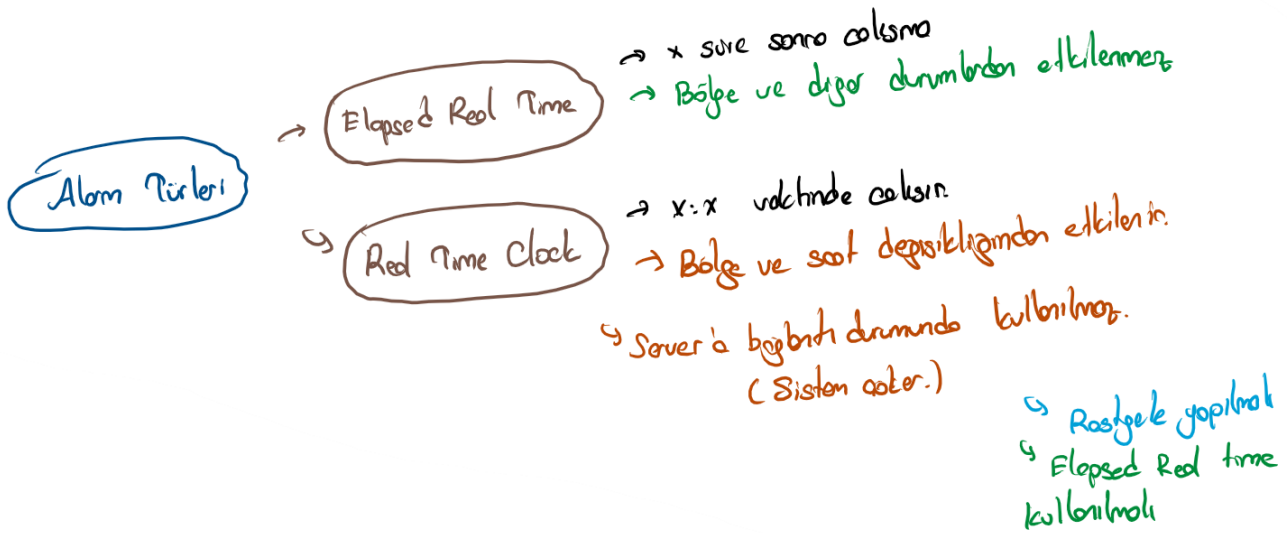 Alarm Türleri
→ Elapsed Real Time
→ x süre sonra calısma
→ Bölge ve diger durumlardan etkilenmez
↪ Real Time Clock
→ x:x vaktinde calışır.
→ Bölge ve saat degisikliginden etkilenir.
↪ Server'a baglantı durumunda kullanılmaz.
(Sistem çöker.)
↪ Rastgele yapılmalı
↪ Elapsed Real time
kullanılmalı